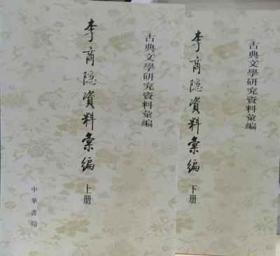 古典文學研究資料彙編
李商隱資料彙編
上册
中華書局
古典文學研究資料彙編
李商隱資料彙編
下册